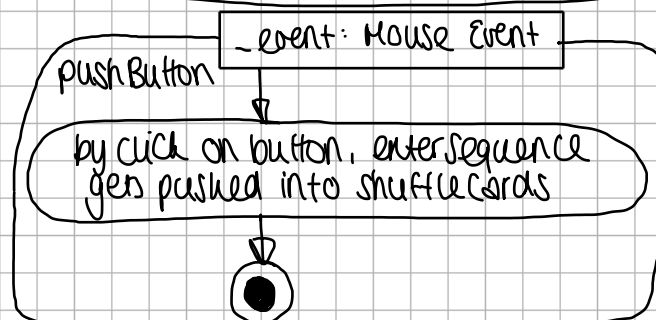 _event: Mouse Event
pushButton
by click on button, entersequence
gets pushed into shuffleCards